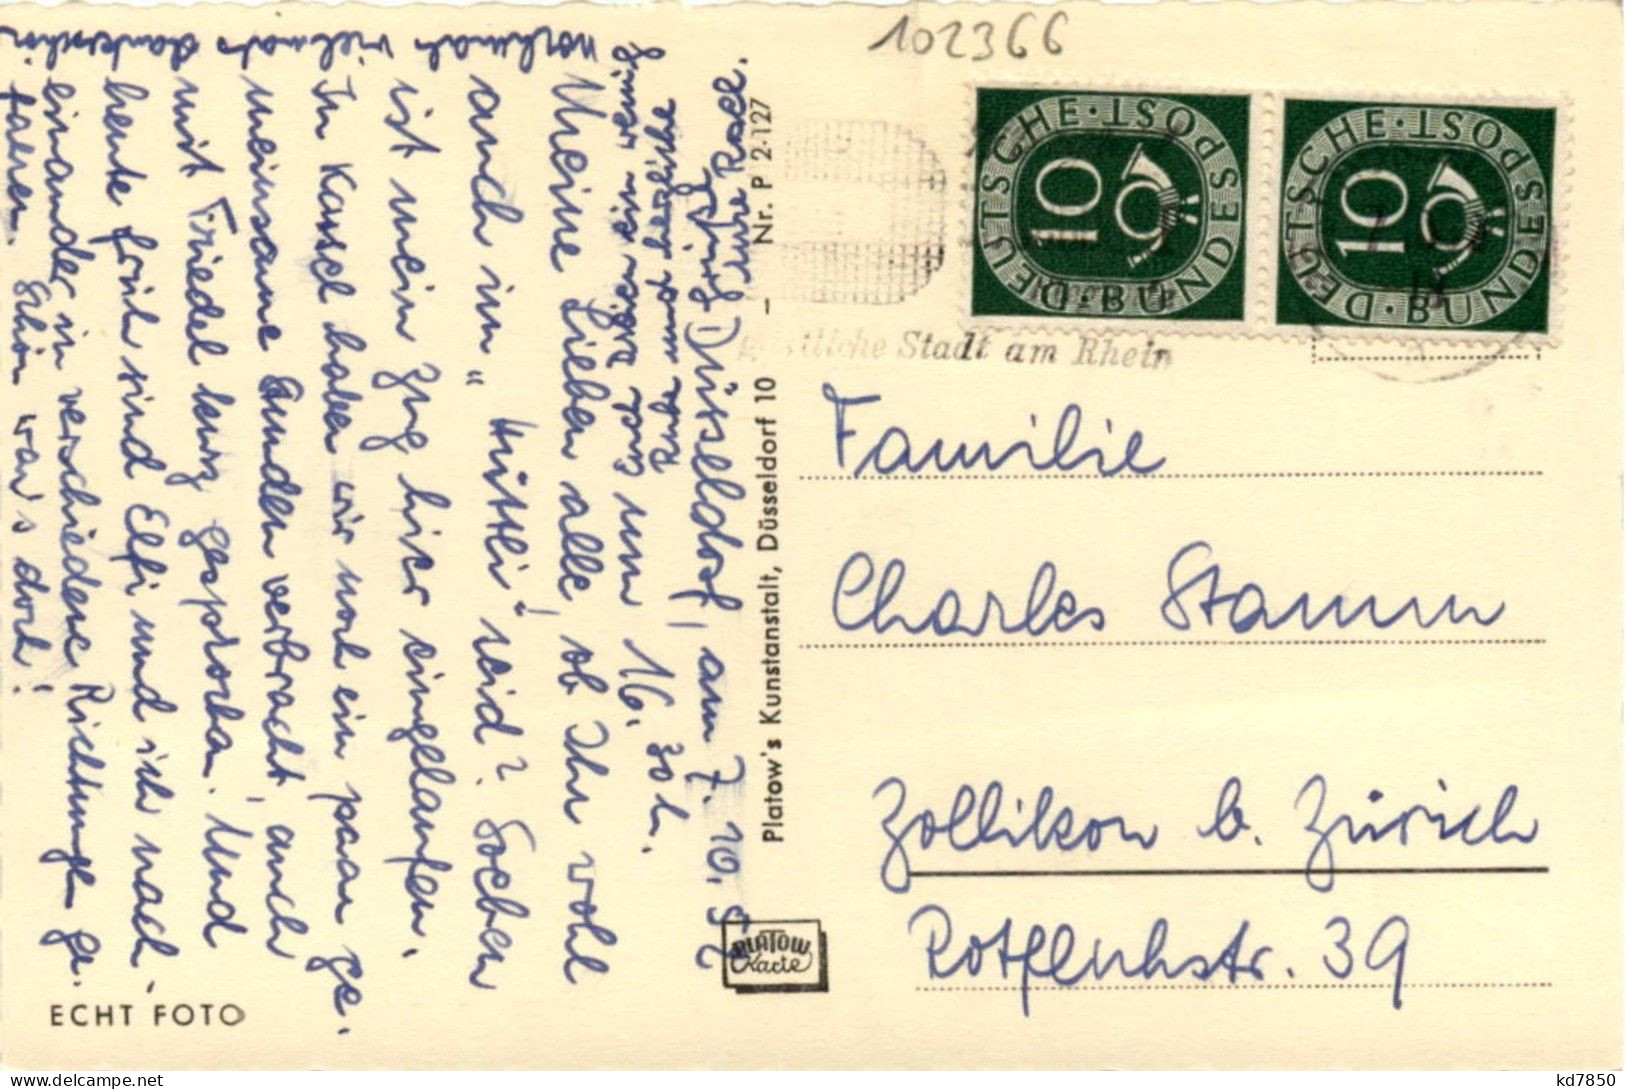 102366
gastliche Stadt am Rhein
DEUTSCHE · BUNDESPOST
10
DEUTSCHE · BUNDESPOST
10
Familie
Charles Stamm
Zollikon b. Zürich
Rotfluhstr. 39
Platow's Kunstanstalt, Düsseldorf 10 — Nr. P 2-127
PLATOW
Karte
ECHT FOTO
Düsseldorf, am 7. 10. 52
um 16.30 h.
Meine Lieben alle, ob Ihr wohl
auch im "Hüttli" seid? Soeben
ist mein Zug hier eingelaufen.
In Kassel haben wir noch ein paar ge-
meinsame Stunden verbracht, auch
mit Friedel kurz gesprochen. Und
heute früh sind Elfi und ich nach-
einander in verschiedene Richtungen ge-
fahren. Schön war's dort!
nochmals vielmals Dankeschön
und herzliche